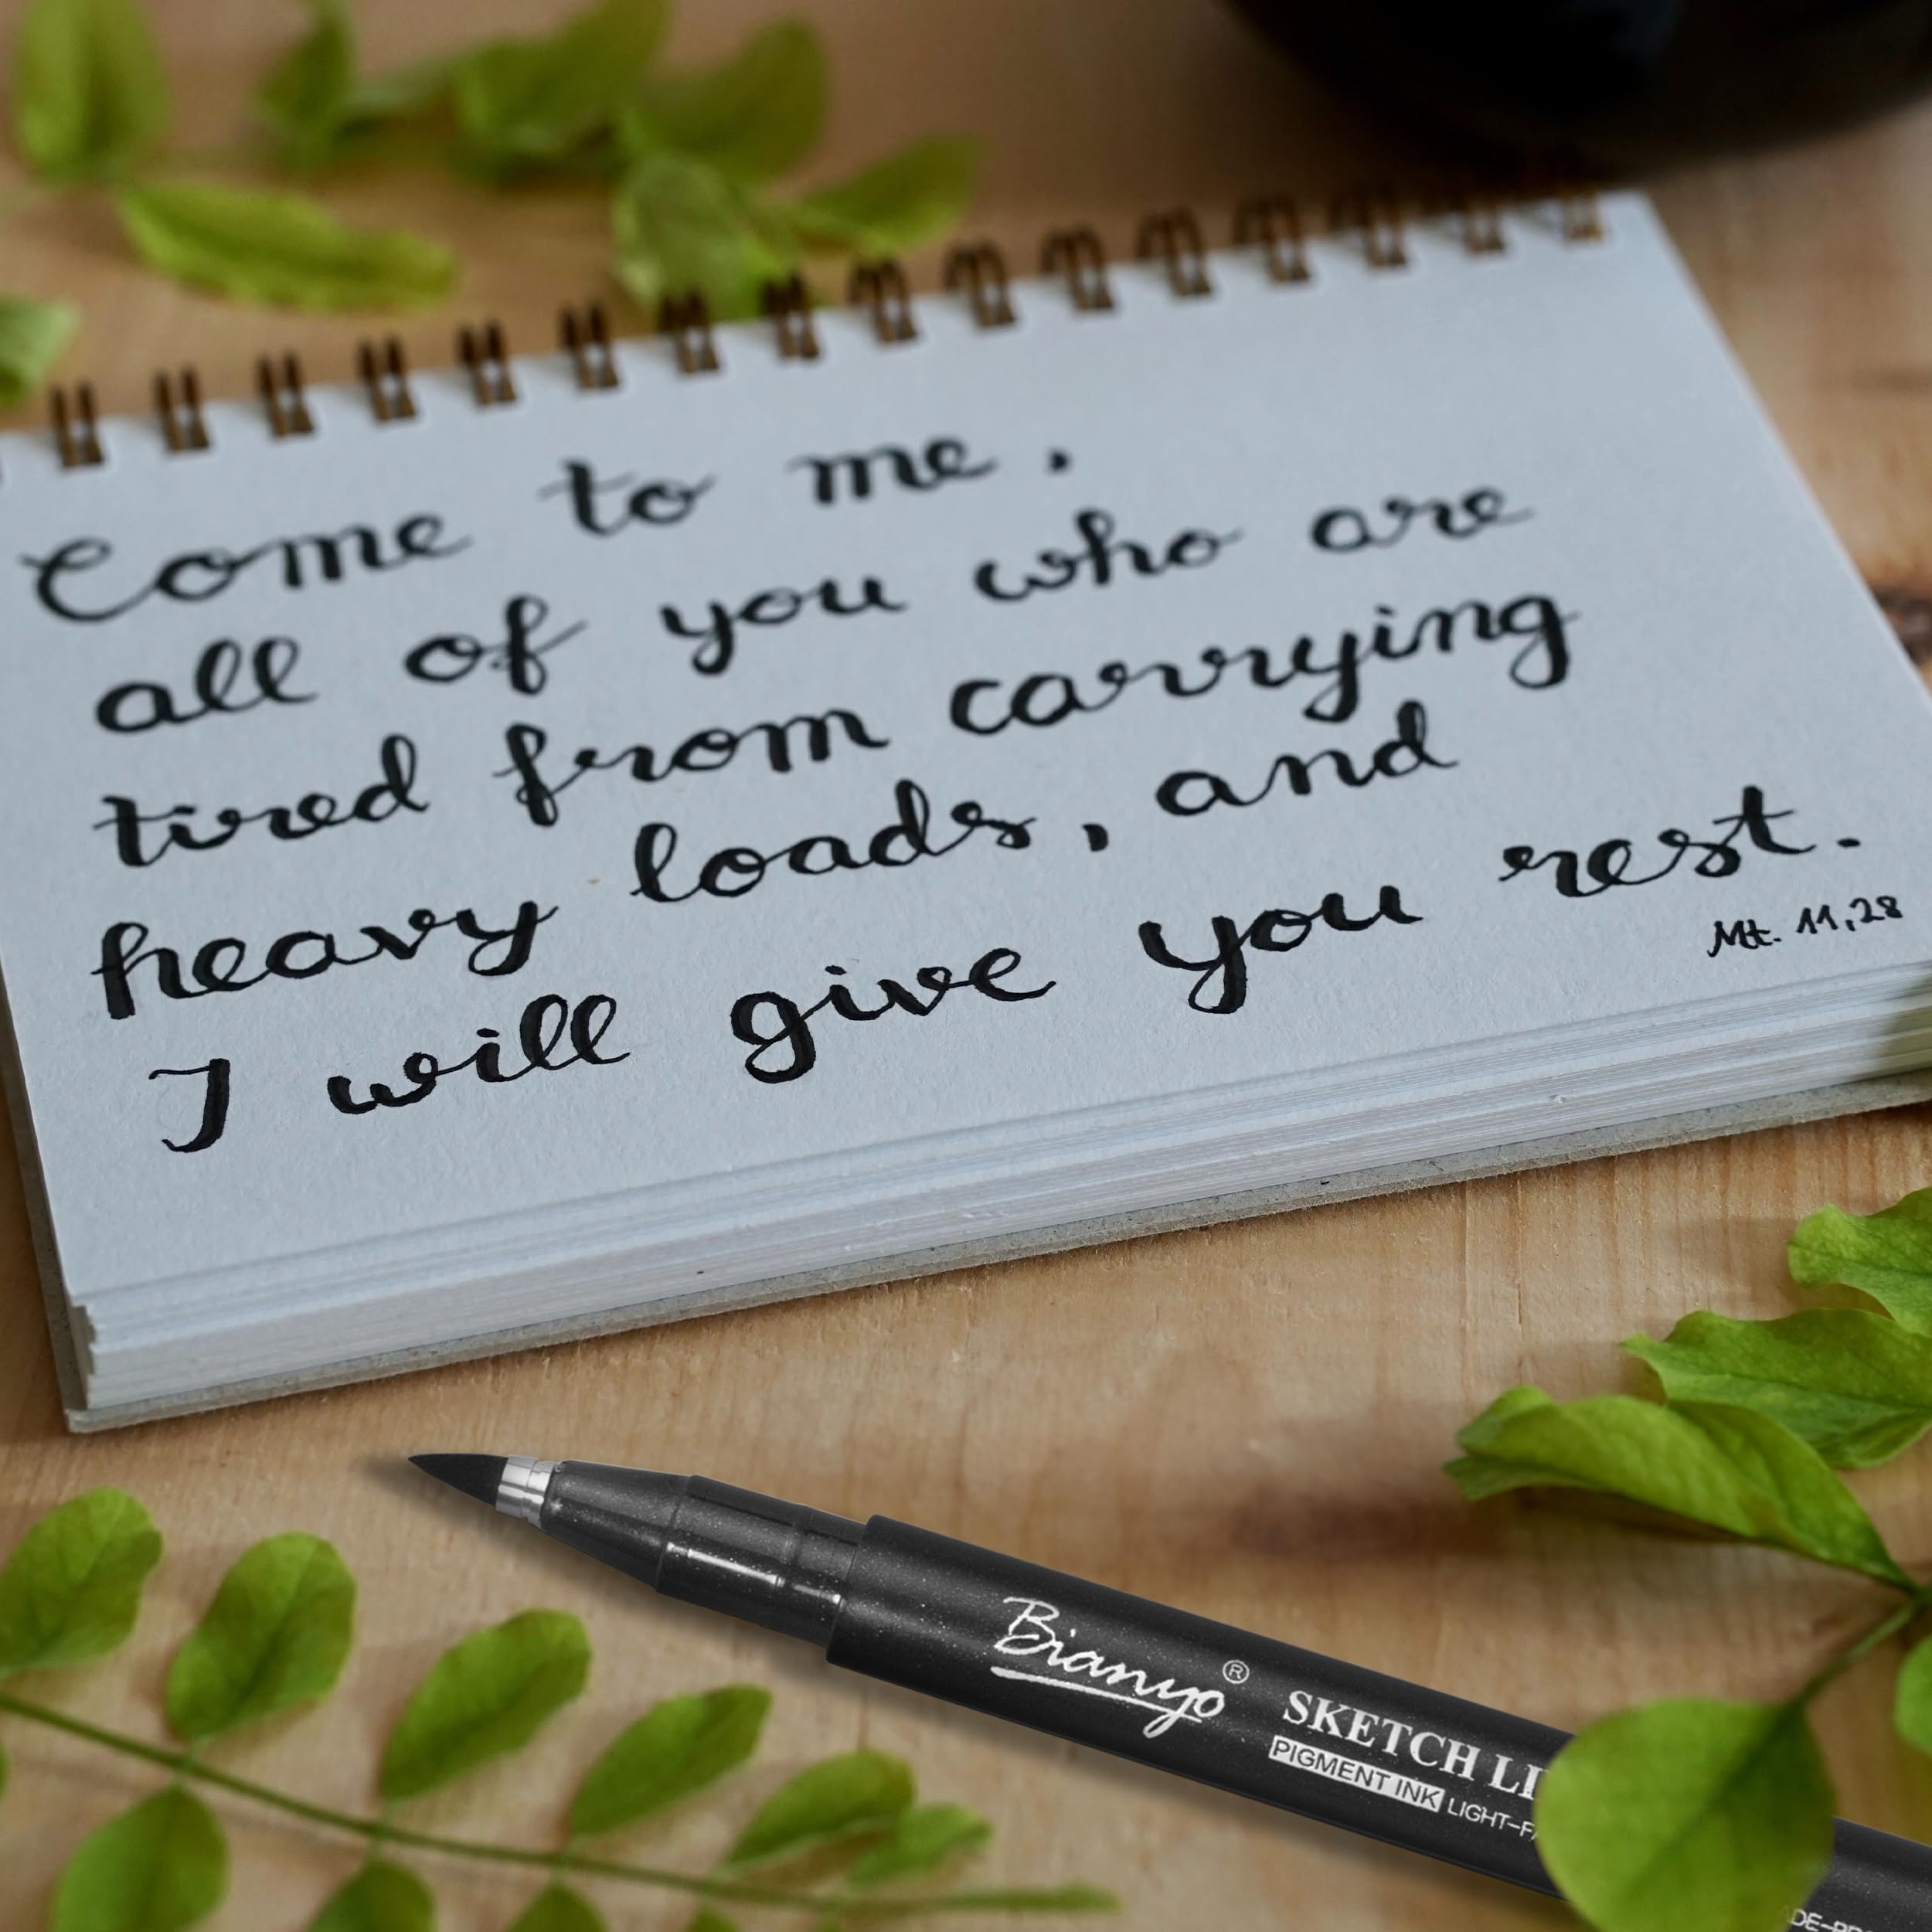 Come to me,
all of you who are
tired from carrying
heavy loads, and
I will give you rest.
Mt. 11,28
Bianyo®
SKETCH
PIGMENT INK